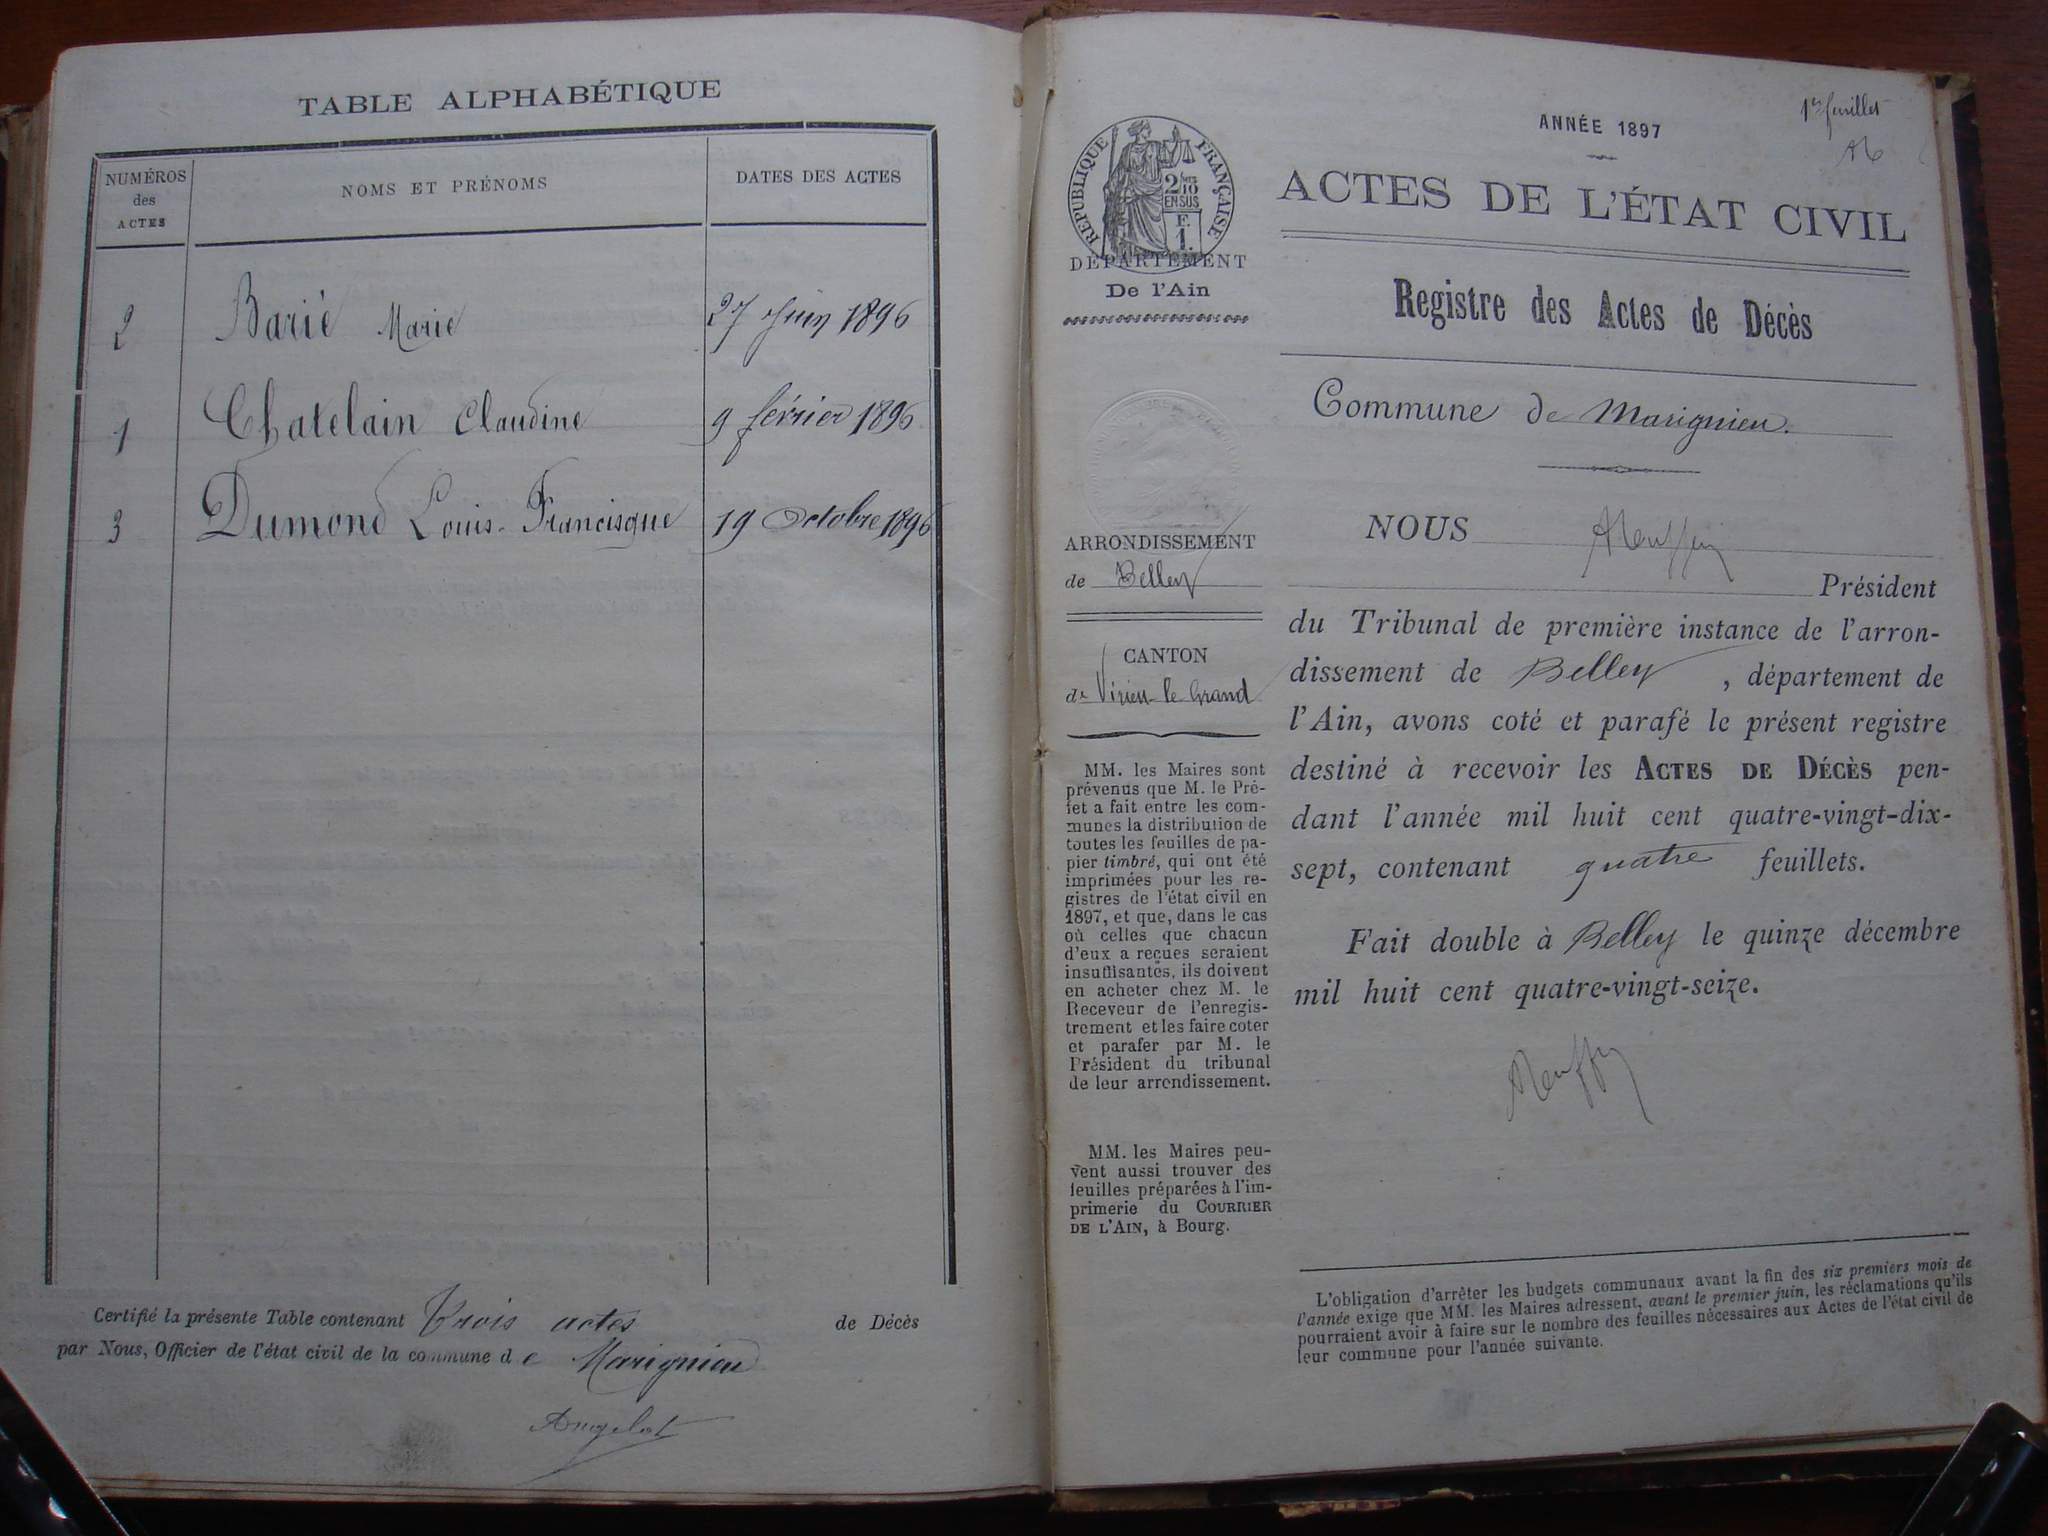 TABLE ALPHABÉTIQUE
NUMÉROS
des
ACTES
NOMS ET PRÉNOMS
DATES DES ACTES
2 Barié Marie 27 Juin 1896
1 Chatelain Claudine 9 février 1896
3 Dumond Louis-Francisque 19 Octobre 1896
Certifié la présente Table contenant trois actes de Décès
par Nous, Officier de l'état civil de la commune de Marignieu
Angelot
1er feuillet
ANNÉE 1897
RÉPUBLIQUE FRANÇAISE
2/10
EN SUS
F.
1.
DÉPARTEMENT
De l'Ain
ACTES DE L'ÉTAT CIVIL
Registre des Actes de Décès
Commune de Marignieu.
ARRONDISSEMENT
de Belley
CANTON
de Virieu-le-Grand
MM. les Maires sont
prévenus que M. le Pré-
fet a fait entre les com-
munes la distribution de
toutes les feuilles de pa-
pier timbré, qui ont été
imprimées pour les re-
gistres de l'état civil en
1897, et que, dans le cas
où celles que chacun
d'eux a reçues seraient
insuffisantes, ils doivent
en acheter chez M. le
Receveur de l'enregis-
trement et les faire coter
et parafer par M. le
Président du tribunal
de leur arrondissement.
MM. les Maires peu-
vent aussi trouver des
feuilles préparées à l'im-
primerie du COURRIER
DE L'AIN, à Bourg.
NOUS
Président
du Tribunal de première instance de l'arron-
dissement de Belley, département de
l'Ain, avons coté et parafé le présent registre
destiné à recevoir les ACTES DE DÉCÈS pen-
dant l'année mil huit cent quatre-vingt-dix-
sept, contenant quatre feuillets.
Fait double à Belley le quinze décembre
mil huit cent quatre-vingt-seize.
L'obligation d'arrêter les budgets communaux avant la fin des six premiers mois de
l'année exige que MM. les Maires adressent, avant le premier juin, les réclamations qu'ils
pourraient avoir à faire sur le nombre des feuilles nécessaires aux Actes de l'état civil de
leur commune pour l'année suivante.